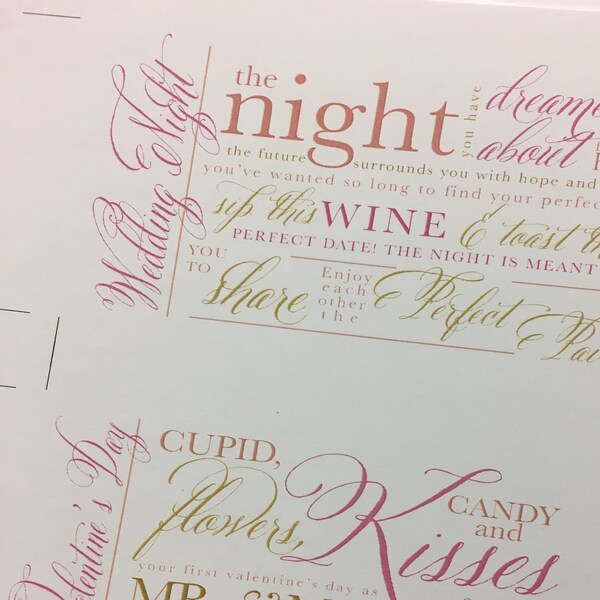 Wedding Night
the night you have dreame
about
the future surrounds you with hope and
you've wanted so long to find your perfec
sip this WINE & toast th
PERFECT DATE! THE NIGHT IS MEANT
YOU TO share Enjoy each other the & Perfect & Pa
Valentine's Day
CUPID,
flowers, Kisses
CANDY and
your first valentine's day as
MR.